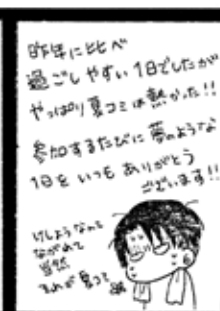 昨年に比べ
過ごしやすい1日でしたが
やっぱり夏コミは熱かった!!
参加するたびに夢のような
1日をいつもありがとう
ございます!!
けしょうなんて
ながれて
当然
それが夏コミ